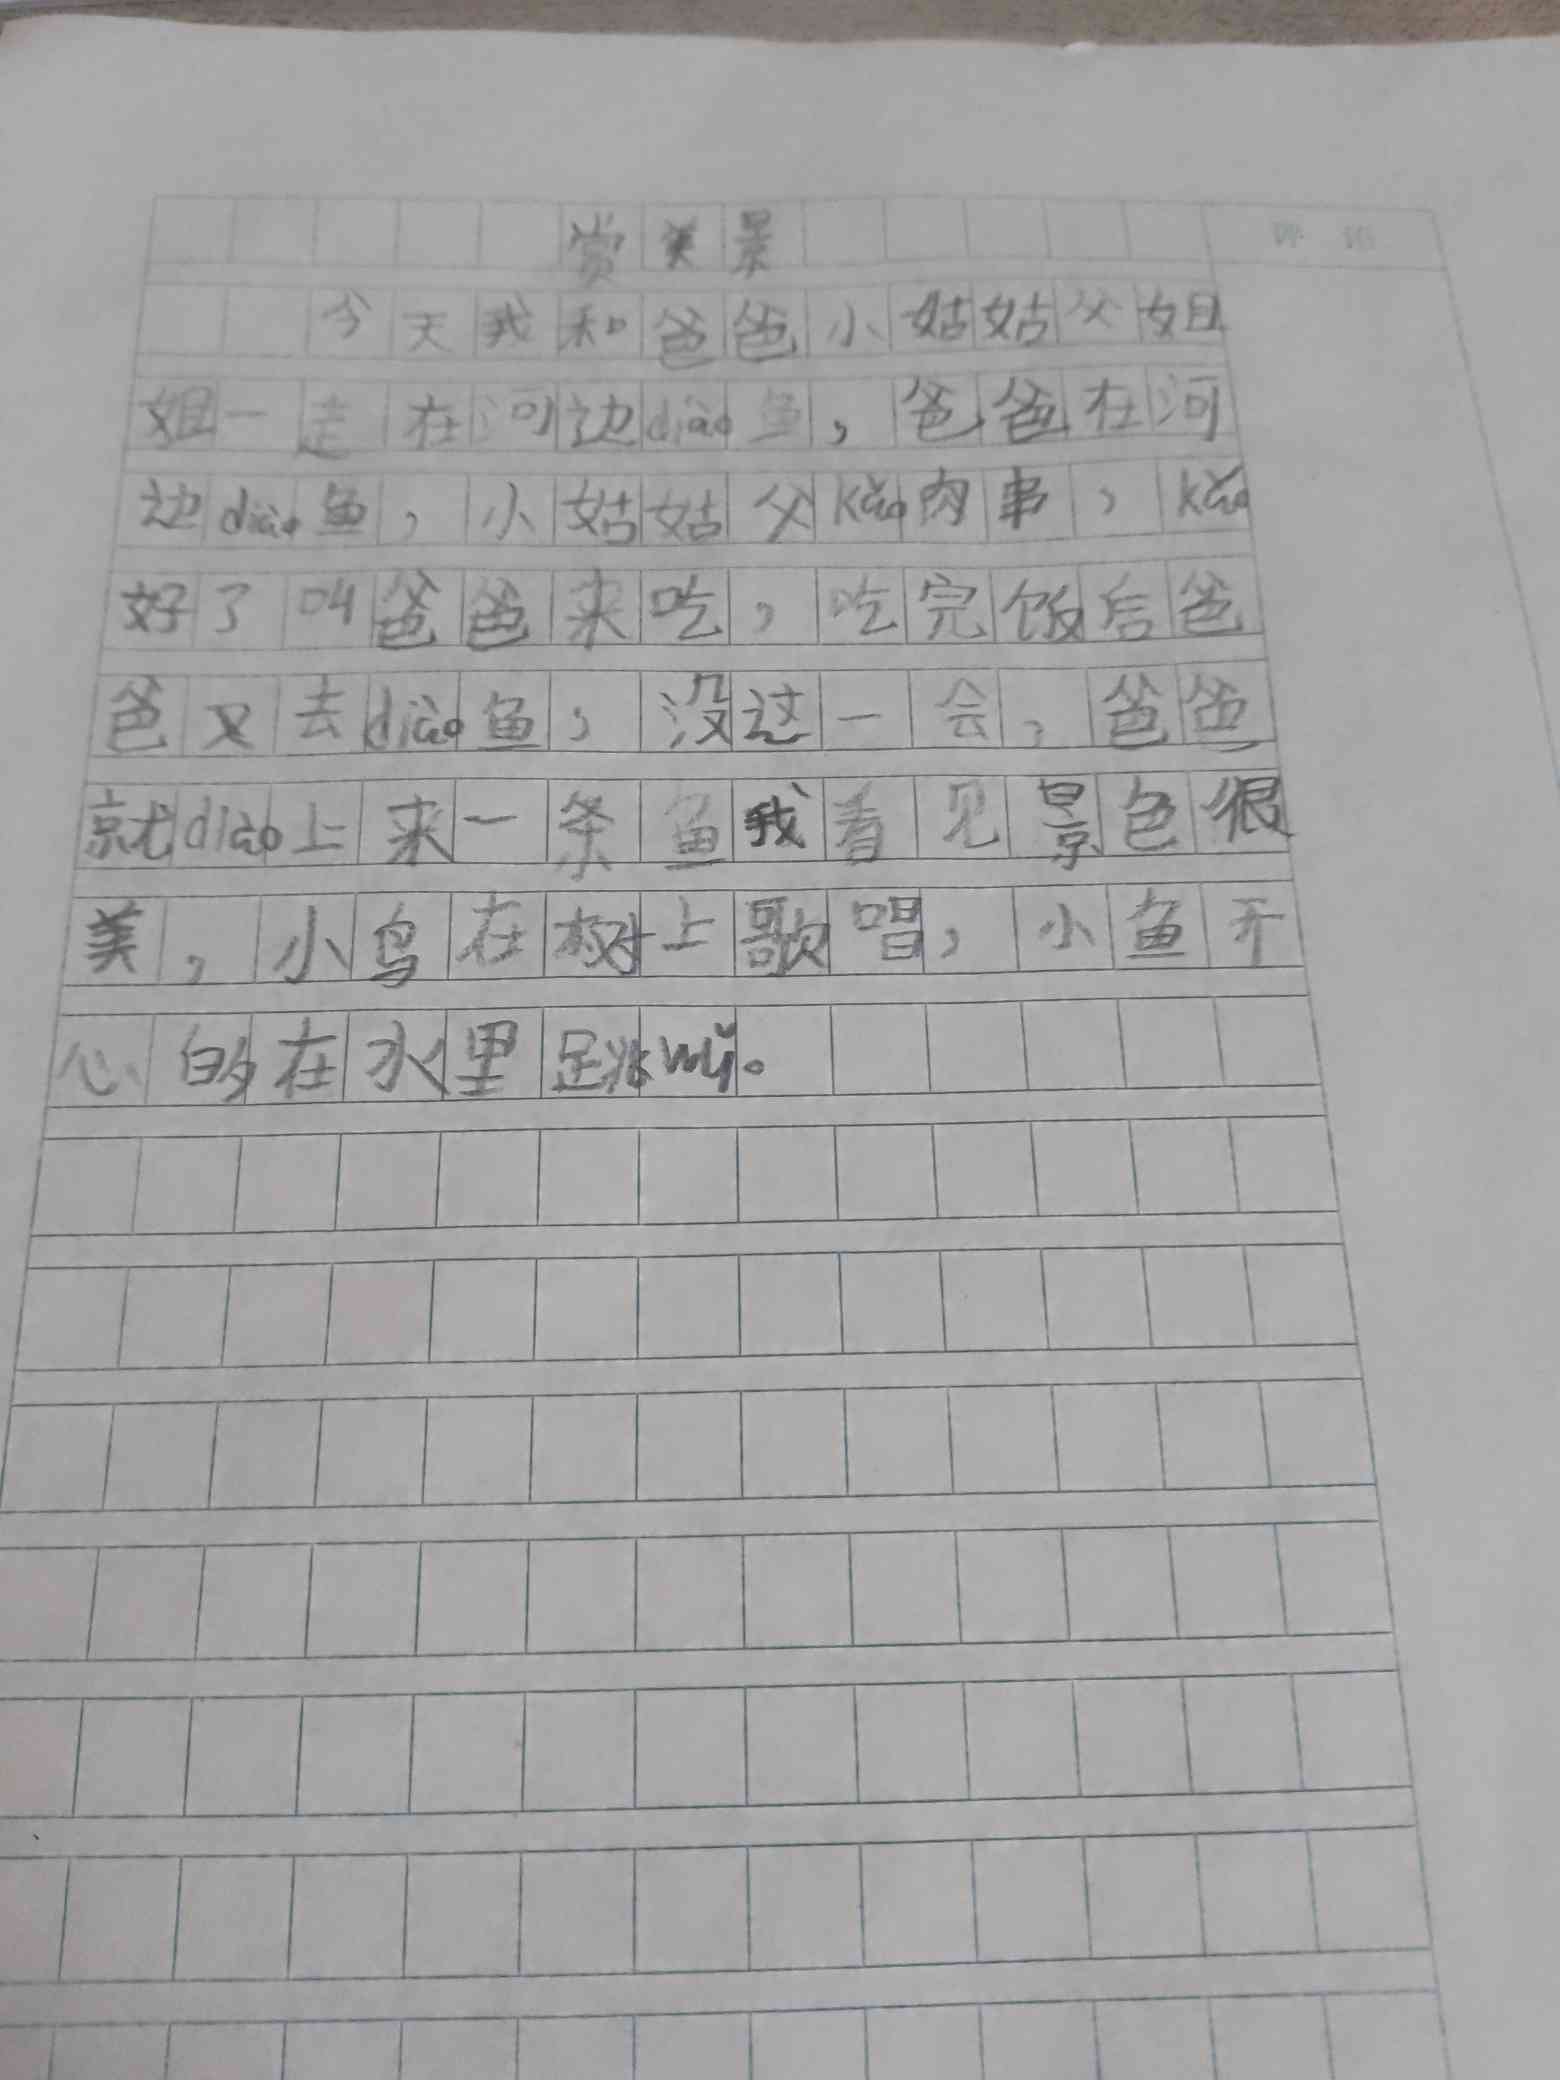 赏美景
今天我和爸爸小姑姑父姐
姐一走在河边diào鱼，爸爸在河
边diào鱼，小姑姑父kǎo肉串，kǎo
好了叫爸爸来吃，吃完饭后爸
爸又去diào鱼，没过一会，爸爸
就diào上来一条鱼我看见景色很
美，小鸟在树上歌唱，小鱼开
心的在水里跳wǔ。